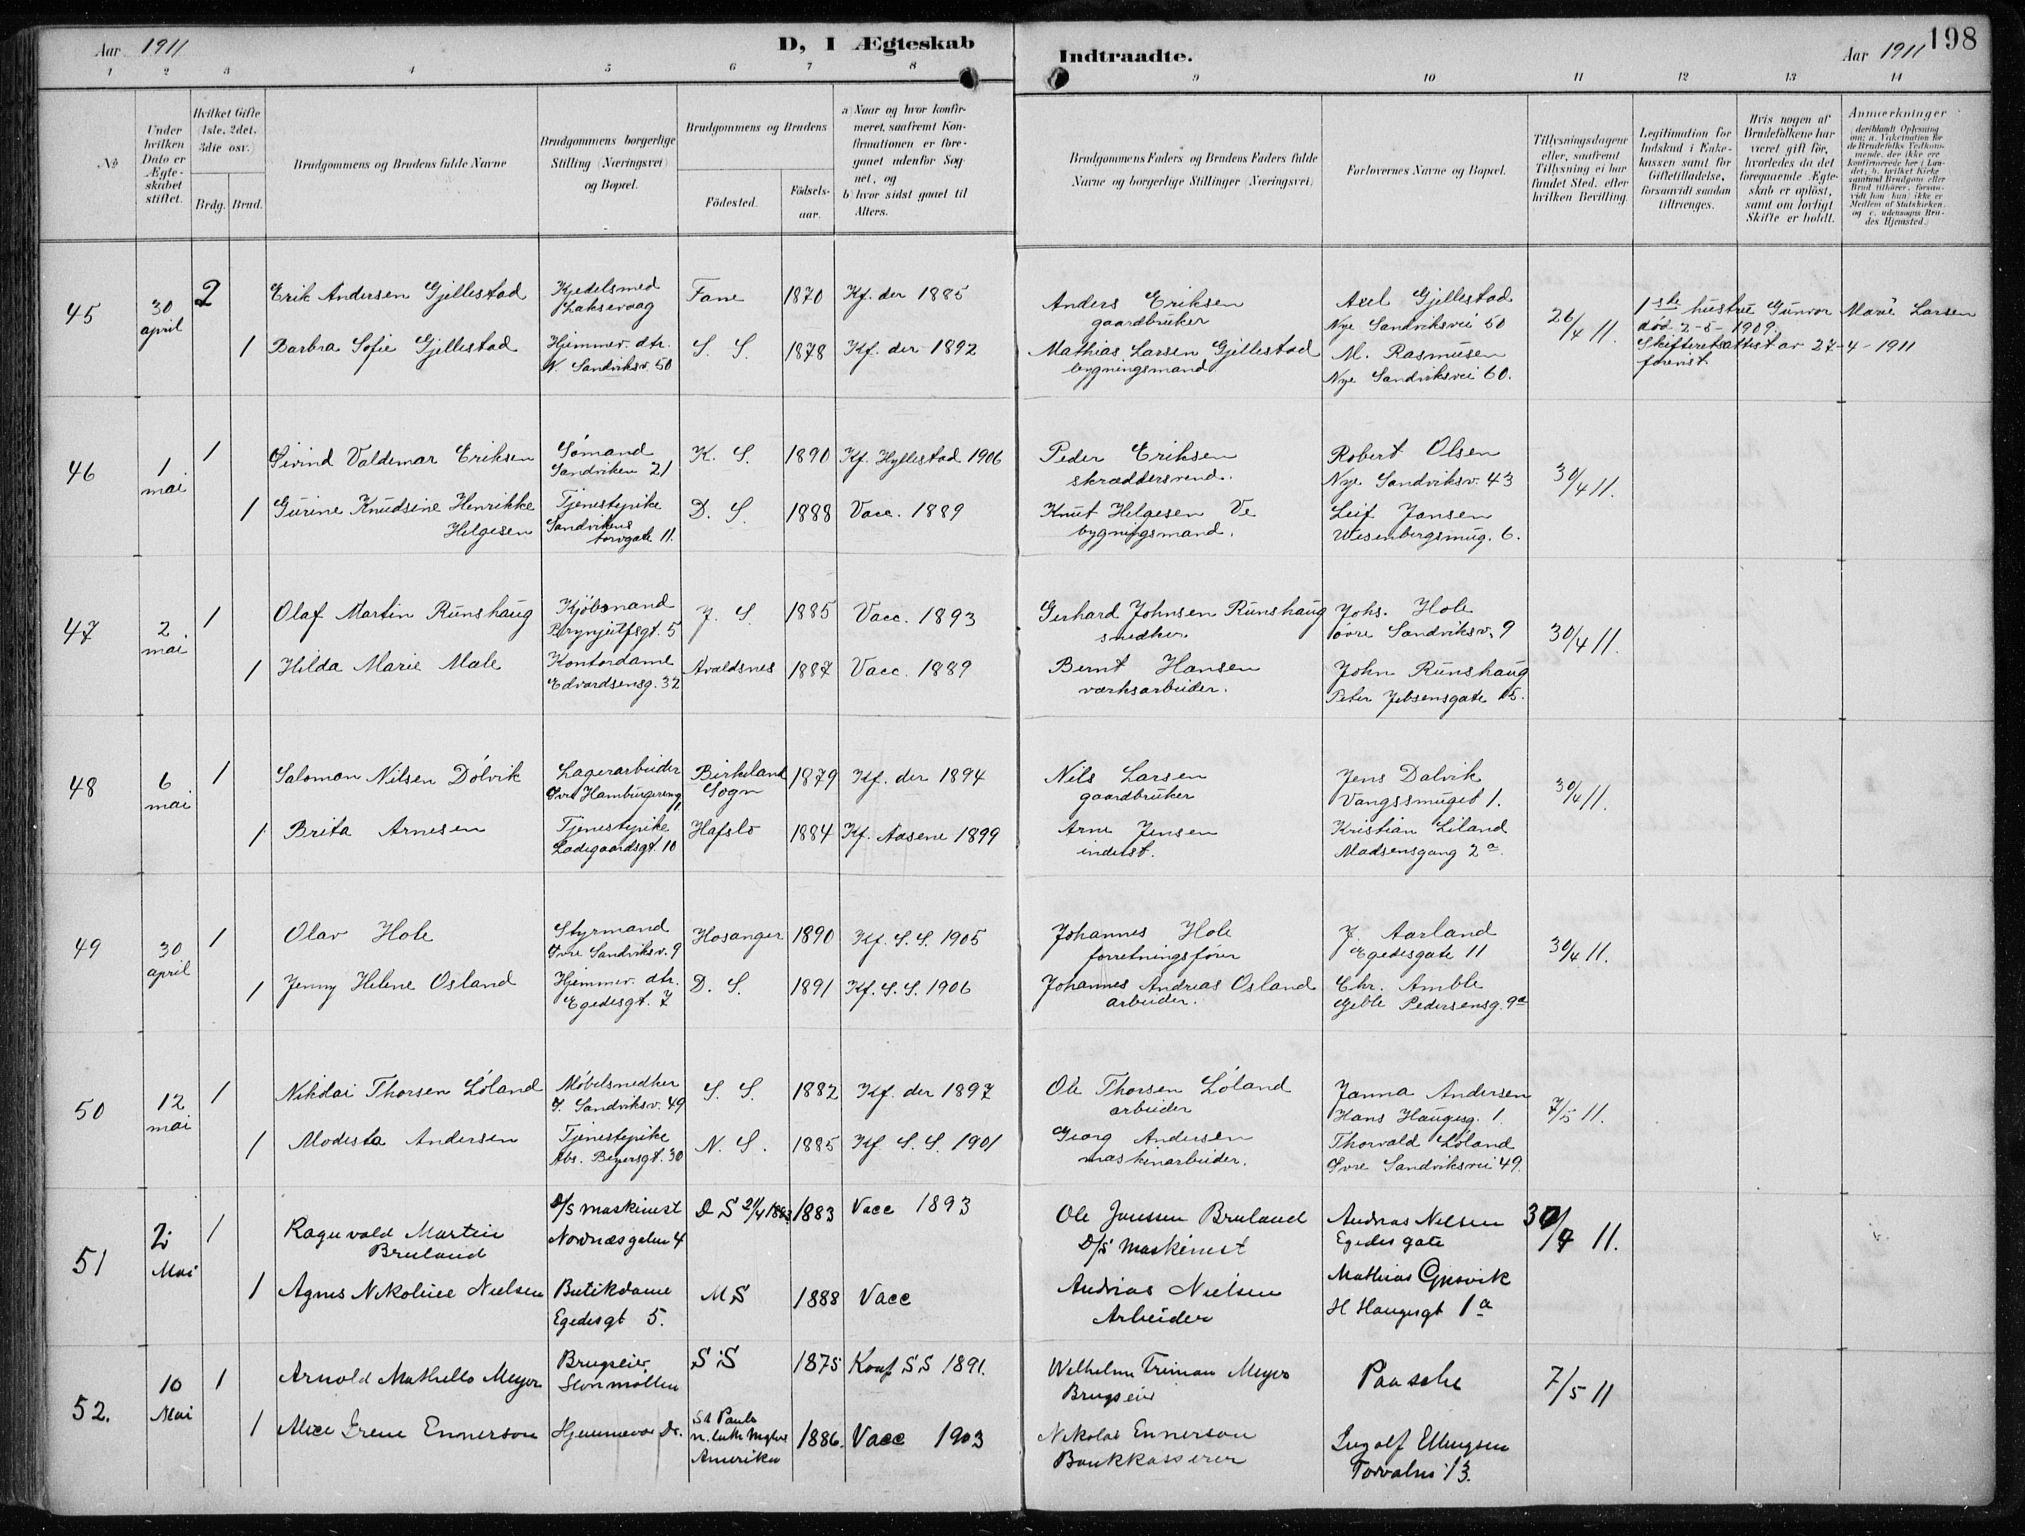 Aar 1911
D, I Ægteskab
Indtraadte.
Aar 1911
198
1 2 3 4 5 6 7 8 9 10 11 12 13 14
No
Under hvilken Dato er Ægteskabet stiftet.
Hvilket Gifte (1ste, 2det, 3die osv.)
Brdg. Brud.
Brudgommens og Brudens fulde Navne
Brudgommens borgerlige Stilling (Næringsvei) og Bopæl.
Brudgommens og Brudens
Födested.
Födselsaar.
a) Naar og hvor konfirmeret, saafremt Konfirmationen er foregaaet udenfor Sognet, og
b) hvor sidst gaaet til Alters.
Brudgommens Faders og Brudens Faders fulde Navne og borgerlige Stillinger (Næringsvei)
Forlovernes Navne og Bopæl.
Tillysningsdagene eller, saafremt Tillysning ei har fundet Sted, efter hvilken Bevilling.
Legitimation for Indskud i Enkekassen samt for Giftetilladelse, forsaavidt saadan tiltrænges.
Hvis nogen af Brudefolkene har været gift før, hvorledes da det foregaaende Ægteskab er oplöst, samt om lovligt Skifte er holdt.
Anmærkninger
45 30 april 2 Erik Andersen Gjellestad Kjedelsmed Laksevaag Fane 1870 Kf. der 1885 Anders Eriksen gaardbruker Axel Gjellestad Nye Sandviksvei 50 26/4 11. 1ste hustru Gunvor Marie Larsen død 2-5-1909. Skifteretsattest av 27-4-1911 forevist.
1 Barbra Sofie Gjellestad Hjemmev. dtr. N. Sandviksv. 50 S. S. 1878 Kf. der 1892 Mathias Larsen Gjellestad bygningsmand. M. Rasmusen Nye Sandviksvei 60.
46 1 mai 1 Øivind Valdemar Eriksen Sømand Sandviken 21 K. S. 1890 Kf. Hyllestad 1906 Peder Eriksen skræddersvend. Robert Olsen Nye Sandviksv. 43 30/4 11.
1 Gurine Knudsine Henrikke Helgesen Tjenestepike Sandvikens torvgate 11. D. S. 1888 Vacc. 1889 Knut Helgesen Ve bygningsmand. Leif Jansen Wesenbergsmug. 6.
47 2. mai 1 Olaf Martin Runshaug Kjøbmand Brynjulfsgt. 5 J. S. 1885 Vacc. 1893 Gerhard Johnsen Runshaug snedker. Johs. Hole øvre Sandviksv. 9 30/4 11.
1 Hilda Marie Male Kontordame Edvardsensg. 32 Avaldsnes 1887 Vacc. 1889 Bernt Hansen værksarbeider. John Runshaug Peter Jebsensgate 15.
48 6 mai 1 Salomon Nilsen Dölvik Lagerarbeider Øvre Hamburgersmug 1 Birkeland Sogn 1879 Kf. der 1894 Nils Larsen gaardbruker Jens Dalvik Vangssmuget 1. 30/4 11.
1 Brita Arnesen Tjenestepike Ladegaardsgt. 10 Hafslo 1884 Kf. Aasene 1899 Arne Jensen inderst. Kristian Liland Madsensgang 2a.
49 30 april 1 Olav Hole Styrmand Øvre Sandviksv. 9 Hosanger 1890 Kf. S. S. 1905 Johannes Hole forretningsfører J. Aarland Egedesgate 11 30/4 11.
1 Jenny Helene Osland Hjemmev. dtr. Egedesgt. 7 D. S. 1891 Kf. S. S. 1906 Johannes Andreas Osland arbeider. Chr. Amble Geble Pedersensg. 9a
50 12 mai 1 Nikolai Thorsen Löland Møbelsnedker Ø. Sandviksv. 49 S. S. 1882 Kf. der 1897 Ole Thorsen Löland arbeider Janna Andersen Hans Haugesg. 1. 7/5 11.
1 Modesta Andersen Tjenestepike Abs. Beyersgt. 30 N. S. 1885 Kf S. S. 1901 Georg Andersen maskinarbeider. Thorvald Löland Øvre Sandviksvei 49.
51 2 Mai 1 Ragnvald Martin Bruland D/S maskinist Nordnæsgaten 4 D S 1883 Vacc 1893 Ole Janssen Bruland D/S Maskinist Andreas Nielsen Egedesgate 30/4 11.
1 Agnes Nikoline Nielsen Butikdame Egedesgt 5. M S 1888 Vacc Andreas Nielsen Arbeider Mathias Gjesvik H Haugesgt 1a
52. 10 Mai 1 Arnold Mathello Meyer Brugseier Storemøllen S S 1875 Konf S S 1891. Wilhelm Friman Meyer Brugseier Paasche 7/5 11
1 Alice Irene Ennerson Hjemmev Dr. St Paul Amerika 1886. Vacc 1903 Nikolas Ennerson Bankkasserer Ingolf Ellingsen Torvalm 13.